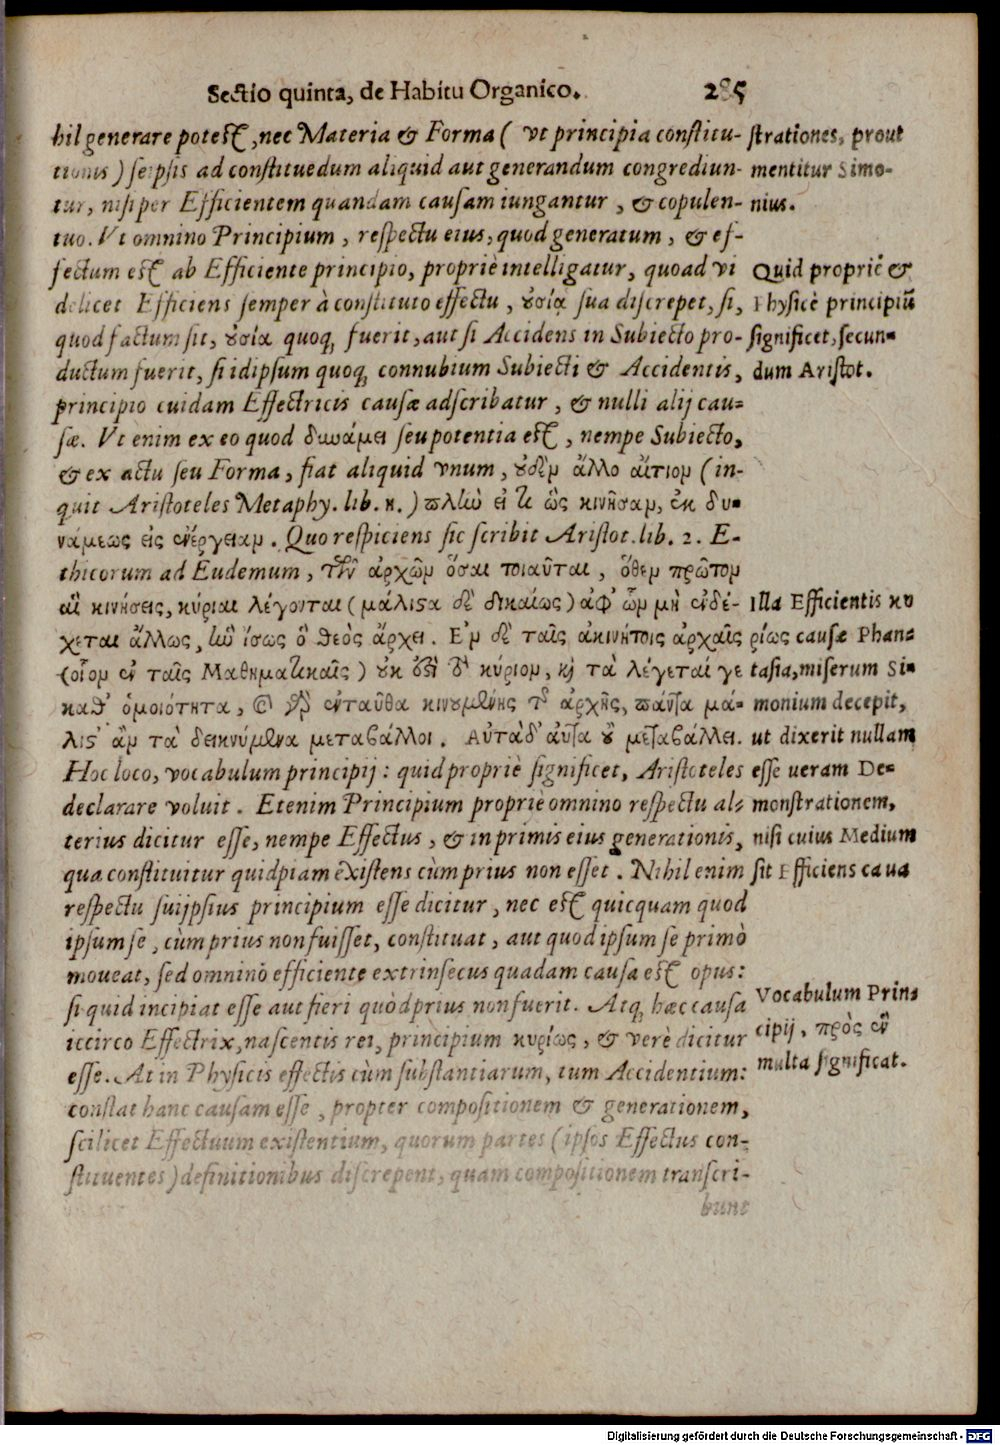 Sectio quinta, de Habitu Organico. 285
hil generare potest, nec Materia & Forma ( vt principia constitu-
tionis ) seipsis ad constituedum aliquid aut generandum congrediun-
tur, nisi per Efficientem quandam causam iungantur, & copulen-
tuo. Vt omnino Principium, respectu eius, quod generatum, & ef-
fectum est ab Efficiente principio, propriè intelligatur, quoad vi
delicet Efficiens semper à constituto effectu, ȣσίᾳ sua discrepet, si,
quod factum sit, ȣσία quoq; fuerit, aut si Accidens in Subiecto pro-
ductum fuerit, si idipsum quoq; connubium Subiecti & Accidentis,
principio cuidam Effectricis causæ adscribatur, & nulli alij cau-
sæ. Vt enim ex eo quod δυνάμει seu potentia est, nempe Subiecto,
& ex actu seu Forma, fiat aliquid vnum, ȣδὲν ἄλλο αἴτιον (in-
quit Aristoteles Metaphy. lib. η.) πλὴν εἴ τι ὡς κινῆσαν, ἐκ δυ-
νάμεως εἰς ἐνέργειαν. Quo respiciens sic scribit Aristot. lib. 2. E-
thicorum ad Eudemum, τῶν ἀρχῶν ὅσαι τοιαῦται, ὅθεν πρῶτον
αἱ κινήσεις, κύριαι λέγονται (μάλιϛα δὲ δικαίως) ἀφ' ὧν μὴ ἐνδέ-
χεται ἄλλως, ἣν ἴσως ὁ θεὸς ἄρχει. Ἐν δὲ ταῖς ἀκινήτοις ἀρχαῖς
(οἷον ἐν ταῖς Μαθηματικαῖς) ȣκ ἔϛι τὸ κύριον, κỳ τὰ λέγεταί γε
καθ' ὁμοιότητα, Καὶ γὰρ ἐνταῦθα κινȣμένης τῆς ἀρχῆς, πάντα μά-
λιϛ' ἂν τὰ δεικνύμενα μεταβάλλοι. Αὐτὰ δ' αὑτὰ ȣ̓ μεταβάλλει.
Hoc loco, vocabulum principij: quid propriè significet, Aristoteles
declarare voluit. Etenim Principium propriè omnino respectu al-
terius dicitur esse, nempe Effectus, & in primis eius generationis,
qua constituitur quidpiam existens cùm prius non esset. Nihil enim
respectu suijpsius principium esse dicitur, nec est quicquam quod
ipsum se, cùm prius non fuisset, constituat, aut quod ipsum se primò
moueat, sed omninò efficiente extrinsecus quadam causa est opus:
si quid incipiat esse aut fieri quòd prius non fuerit. Atq; hæc causa
iccirco Effectrix, nascentis rei, principium κυρίως, & verè dicitur
esse. At in Physicis effectis cùm substantiarum, tum Accidentium:
constat hanc causam esse, propter compositionem & generationem,
scilicet Effectuum existentium, quorum partes (ipsos Effectus con-
stituentes) definitionibus discrepent, quam compositionem transcri-
bunt
strationes, prout
mentitur Simo-
nius.
Quid propriè &
Physicè principiū
significet, secun-
dum Aristot.
Illa Efficientis κυ
ρίως causæ Phan-
tasia, miserum Si-
monium decepit,
ut dixerit nullam
esse ueram De-
monstrationem,
nisi cuius Medium
sit Efficiens caua
Vocabulum Prin-
cipij, πρὸς ἓν
multa significat.
Digitalisierung gefördert durch die Deutsche Forschungsgemeinschaft - DFG